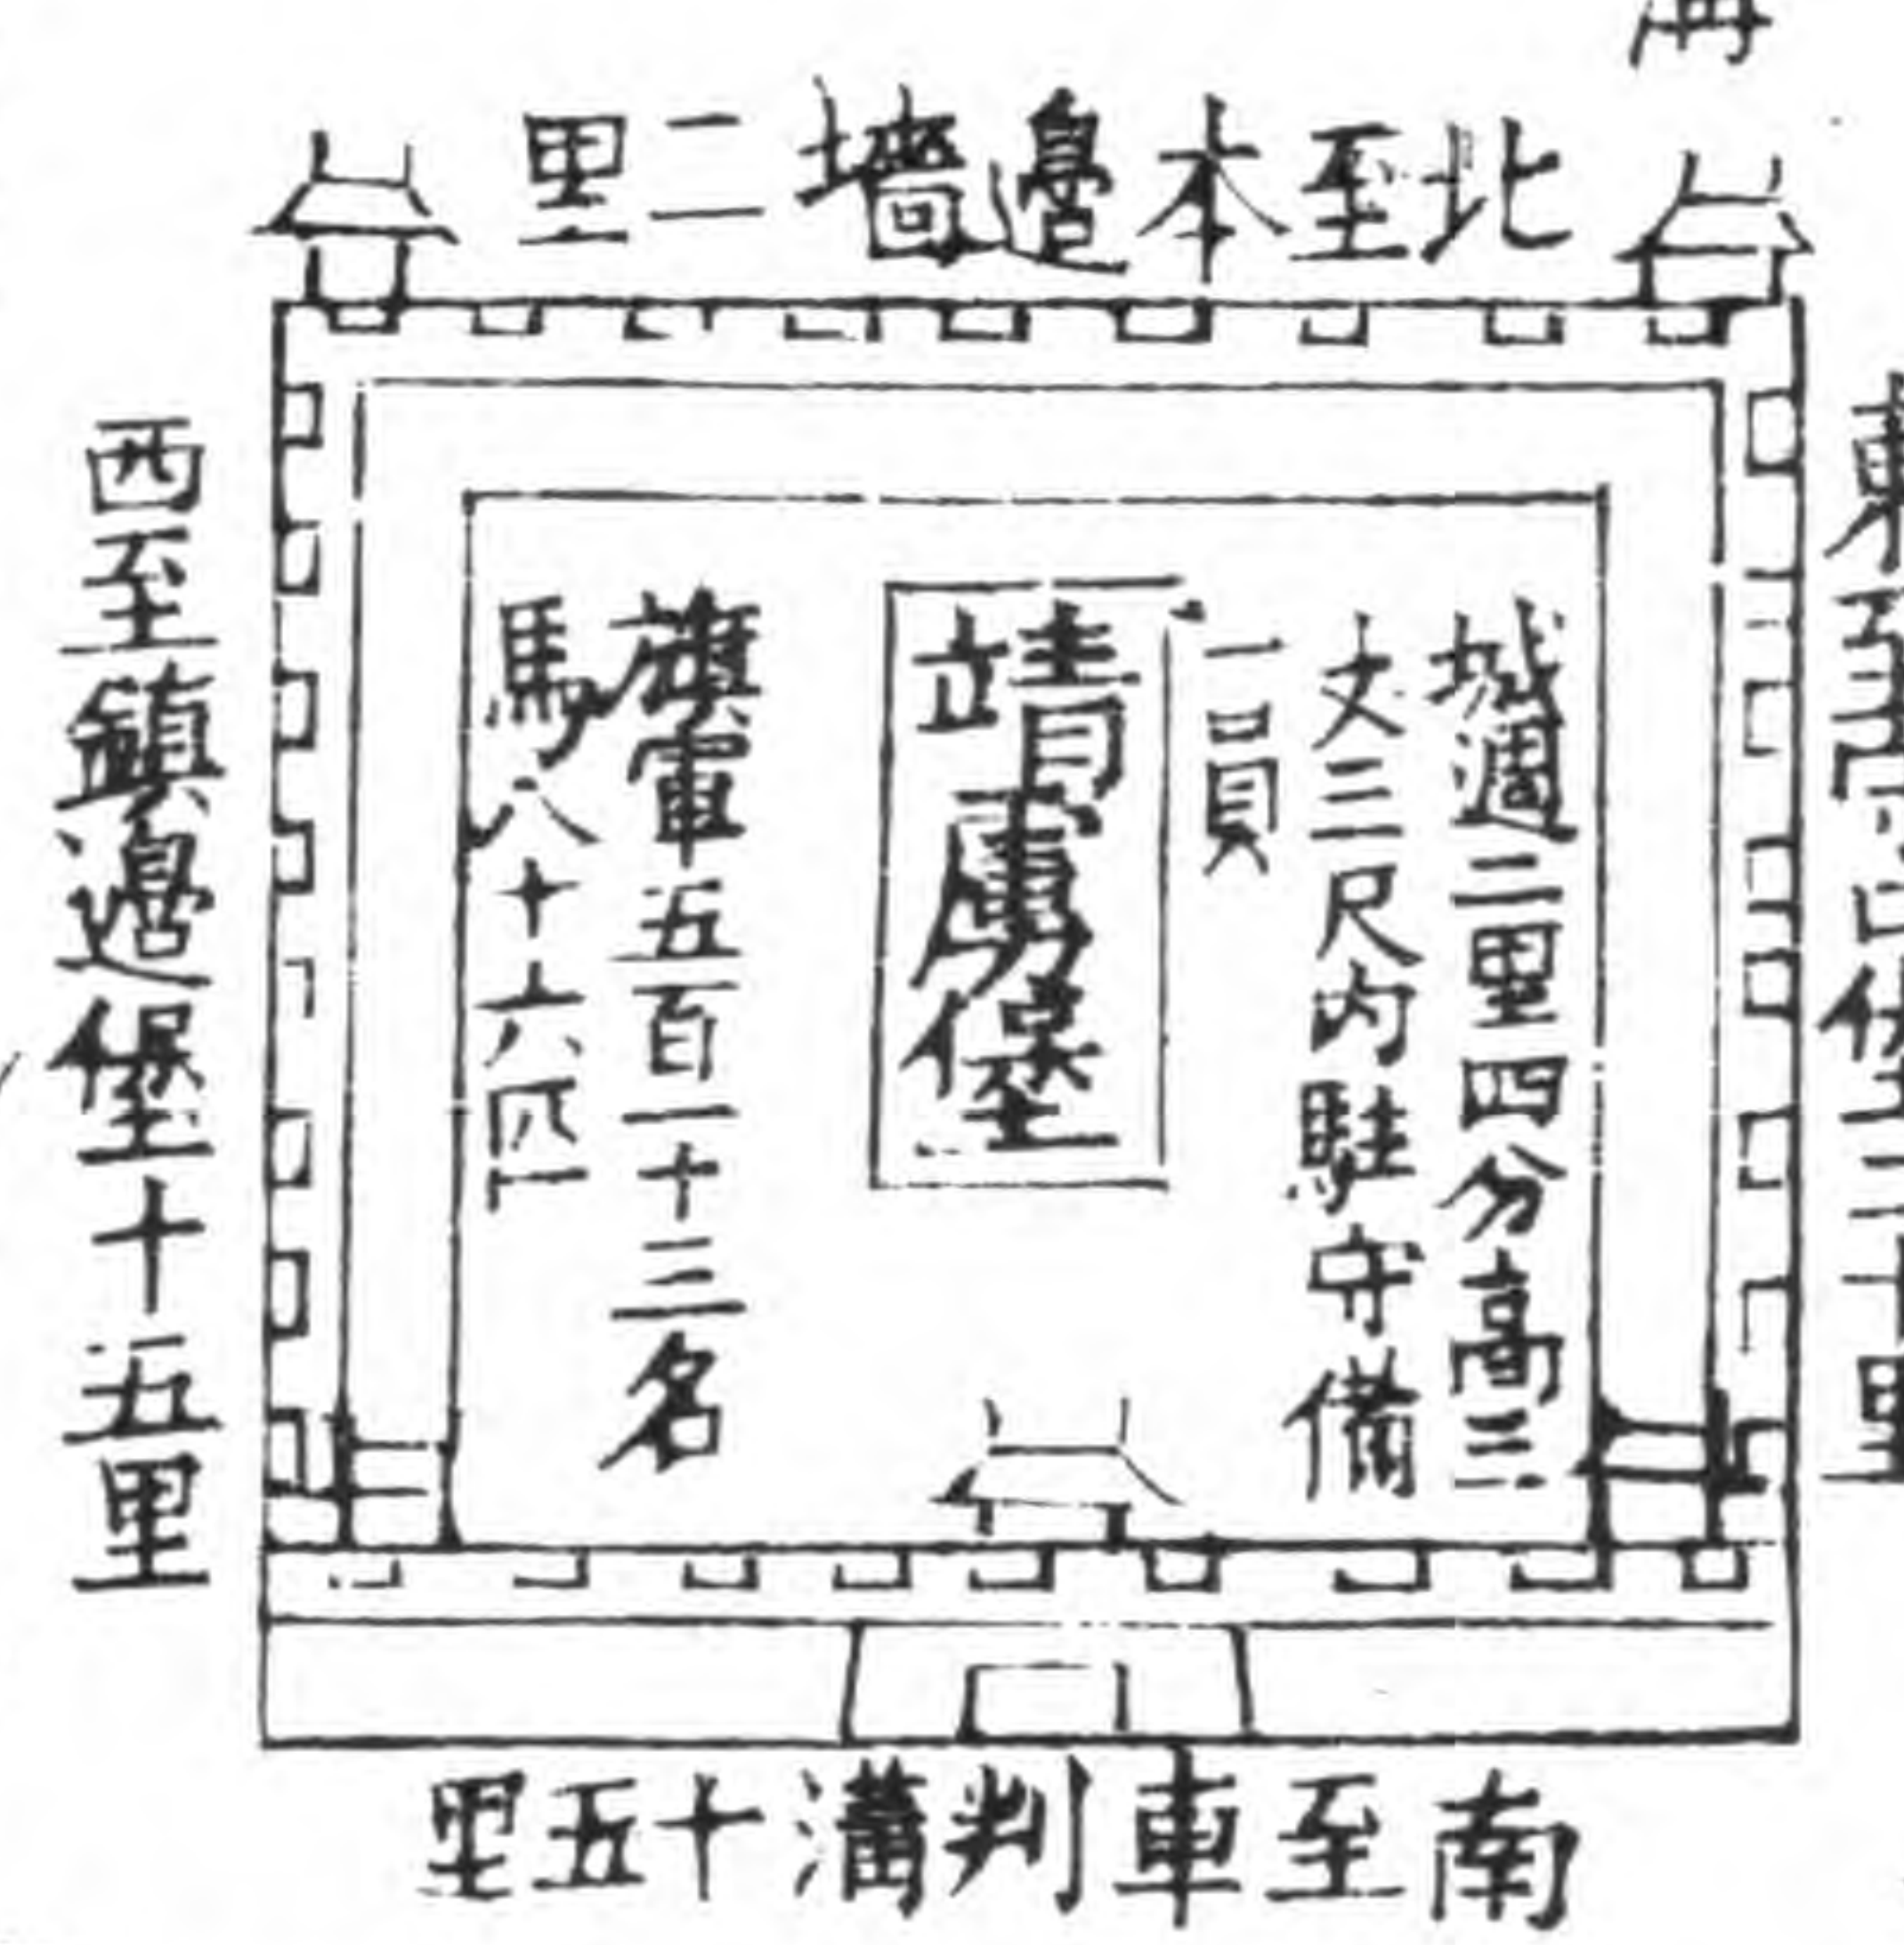 北至本邊墻二里
東至守口堡二十里
城週二里四分高三
丈三尺內駐守備
一員
靖虜堡
旗軍五百一十三名
馬八十六匹
西至鎮邊堡十五里
南至車判溝十五里